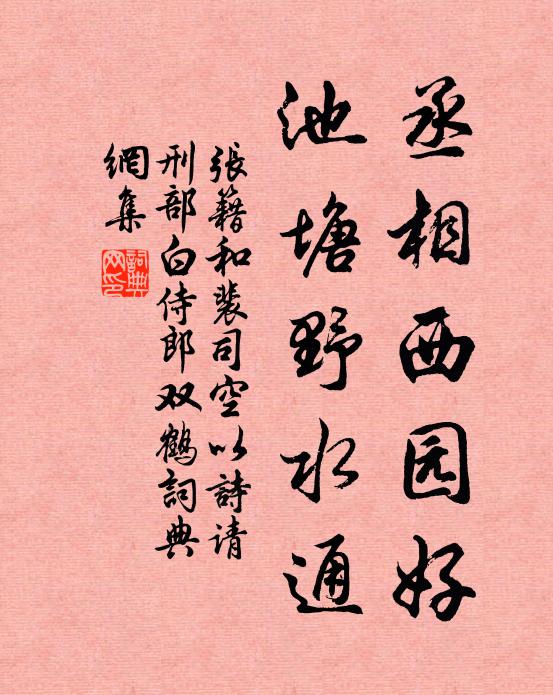 丞相西园好
池塘野水通
張籍和裴司空以詩请
刑部白侍郎双鹤詞典
網集
詞典网印